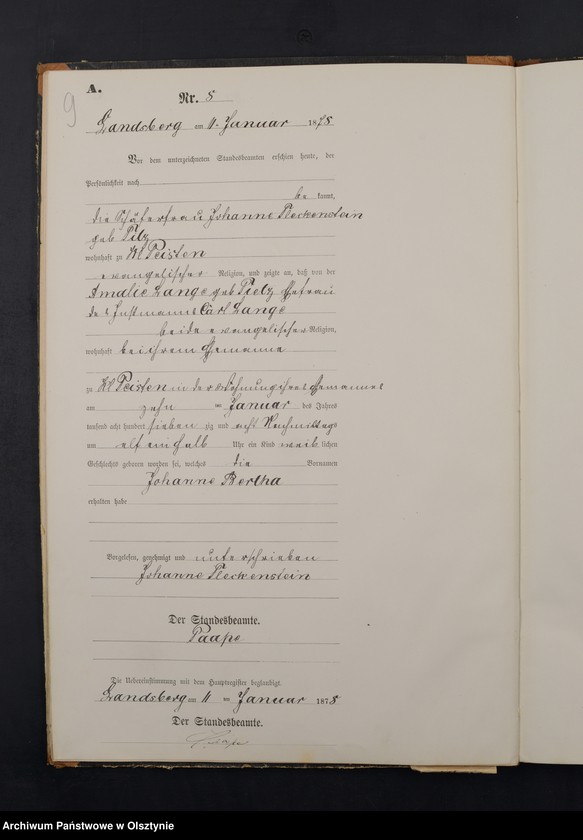 A.
9
Nr. 8
Landsberg am 11. Januar 1878
Vor dem unterzeichneten Standesbeamten erschien heute, der
Persönlichkeit nach
be kannt,
die Schäferfrau Johanne Fleckenstein
geb Pilz
wohnhaft zu Kl Peisten
evangelischer Religion, und zeigte an, daß von der
Amalie Lange geb Pielz Ehefrau
des Instmanns Carl Lange
beide evangelischer Religion,
wohnhaft bei ihrem Ehemanne
zu Kl Peisten in der Wohnung ihres Ehemannes
am zehn ten Januar des Jahres
tausend acht hundert sieben zig und acht Nachmittags
um elf einhalb Uhr ein Kind weib lichen
Geschlechts geboren worden sei, welches die Vornamen
Johanne Bertha
erhalten habe
Vorgelesen, genehmigt und unterschrieben
Johanne Fleckenstein
Der Standesbeamte.
Paape
Die Uebereinstimmung mit dem Hauptregister beglaubigt.
Landsberg am 11 ten Januar 1878
Der Standesbeamte.
Paape
Archiwum Państwowe w Olsztynie